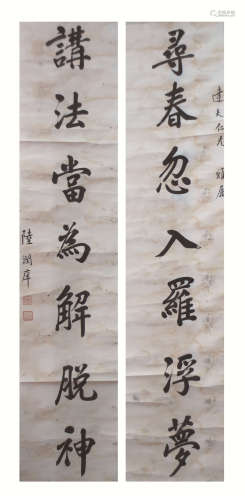 尋春忽入羅浮夢
達夫仁兄 雅屬
講法當為解脫神
陸潤庠